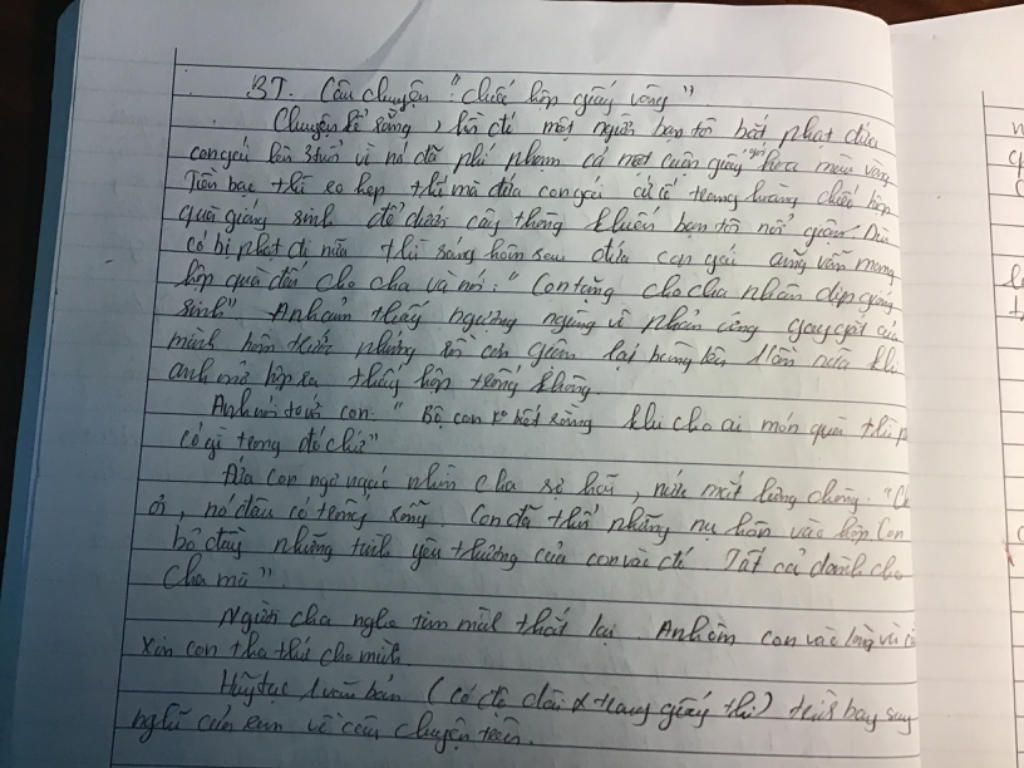 BT. Câu chuyện "chiếc hộp giấy vàng"
Chuyện kể rằng, hồi đó một người bạn tôi bắt phạt đứa
con gái lên 3 tuổi vì nó đã phí phạm cả một cuộn giấy gói hoa màu vàng
Tiền bạc thì eo hẹp thế mà đứa con gái cứ cố trang hoàng chiếc hộp
quà giáng sinh để dưới cây thông khiến bạn tôi nổi giận. Dù
có bị phạt đi nữa thì sáng hôm sau đứa con gái cũng vẫn mang
hộp quà đến cho cha và nói: "Con tặng cho cha nhân dịp giáng
sinh" Anh cảm thấy ngượng ngùng vì phản ứng gay gắt của
mình hôm trước nhưng rồi cơn giận lại bùng lên 1 lần nữa khi
anh mở hộp ra thấy hộp trống không.
Anh nói to với con. "Bộ con ko biết rằng khi cho ai món quà thì p
có gì trong đó chứ"
Đứa con ngơ ngác nhìn cha sợ hãi, nước mắt lưng chòng. "Ch
ơi, nó đâu có trống rỗng. Con đã thổi những nụ hôn vào hộp Con
bỏ đầy những tình yêu thương của con vào đó Tất cả dành cho
Cha mà".
Người cha nghe tim mình thắt lại. Anh ôm con vào lòng và c
xin con tha thứ cho mình.
Hãy tạo 1 văn bản (có độ dài trang giấy thi) trình bày suy
nghĩ của em về câu chuyện trên.